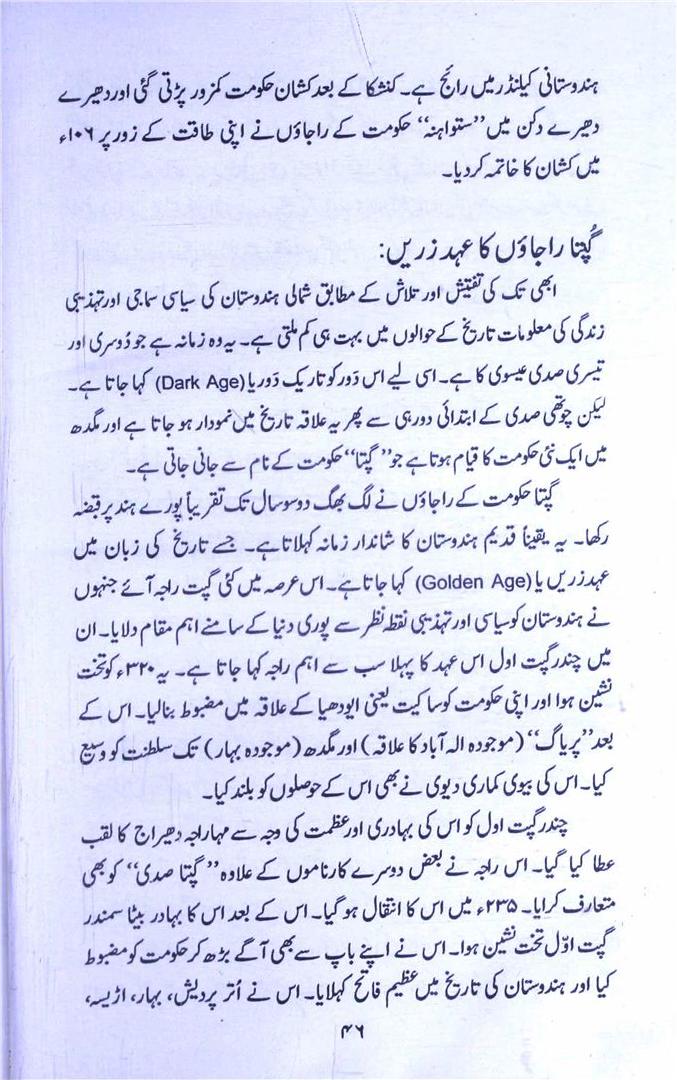 ہندوستانی کیلنڈر میں رائج ہے۔ کنشکا کے بعد کشان حکومت کمزور پڑتی گئی اور دھیرے
دھیرے دکن میں ’’ستواہنہ‘‘ حکومت کے راجاؤں نے اپنی طاقت کے زور پر ۱۰۶ء
میں کشان کا خاتمہ کردیا۔
گُپتا راجاؤں کا عہد زریں:
ابھی تک کی تفتیش اور تلاش کے مطابق شمالی ہندوستان کی سیاسی سماجی اور تہذیبی
زندگی کی معلومات تاریخ کے حوالوں میں بہت ہی کم ملتی ہے۔ یہ وہ زمانہ ہے جو دُوسری اور
تیسری صدی عیسوی کا ہے۔ اسی لیے اس دَور کو تاریک دَور یا (Dark Age) کہا جاتا ہے۔
لیکن چوتھی صدی کے ابتدائی دور ہی سے پھر یہ علاقہ تاریخ میں نمودار ہو جاتا ہے اور مگدھ
میں ایک نئی حکومت کا قیام ہوتا ہے جو ’’گپتا‘‘ حکومت کے نام سے جانی جاتی ہے۔
گپتا حکومت کے راجاؤں نے لگ بھگ دو سو سال تک تقریباً پورے ہند پر قبضہ
رکھا۔ یہ یقیناً قدیم ہندوستان کا شاندار زمانہ کہلاتا ہے۔ جسے تاریخ کی زبان میں
عہد زریں یا (Golden Age) کہا جاتا ہے۔ اس عرصہ میں کئی گپت راجہ آئے جنہوں
نے ہندوستان کو سیاسی اور تہذیبی نقطہ نظر سے پوری دنیا کے سامنے اہم مقام دلایا۔ ان
میں چندر گپت اول اس عہد کا پہلا سب سے اہم راجہ کہا جاتا ہے۔ یہ ۳۲۰ء کو تخت
نشین ہوا اور اپنی حکومت کو ساکیت یعنی ایودھیا کے علاقہ میں مضبوط بنالیا۔ اس کے
بعد ’’پریاگ‘‘ (موجودہ الہ آباد کا علاقہ) اور مگدھ (موجودہ بہار) تک سلطنت کو وسیع
کیا۔ اس کی بیوی کماری دیوی نے بھی اس کے حوصلوں کو بلند کیا۔
چندر گپت اول کو اس کی بہادری اور عظمت کی وجہ سے مہاراجہ دھیراج کا لقب
عطا کیا گیا۔ اس راجہ نے بعض دوسرے کارناموں کے علاوہ ’’گپتا صدی‘‘ کو بھی
متعارف کرایا۔ ۲۳۵ء میں اس کا انتقال ہو گیا۔ اس کے بعد اس کا بہادر بیٹا سمندر
گپت اوّل تخت نشین ہوا۔ اس نے اپنے باپ سے بھی آگے بڑھ کر حکومت کو مضبوط
کیا اور ہندوستان کی تاریخ میں عظیم فاتح کہلایا۔ اس نے اُتر پردیش، بہار، اڑیسہ،
۴۶